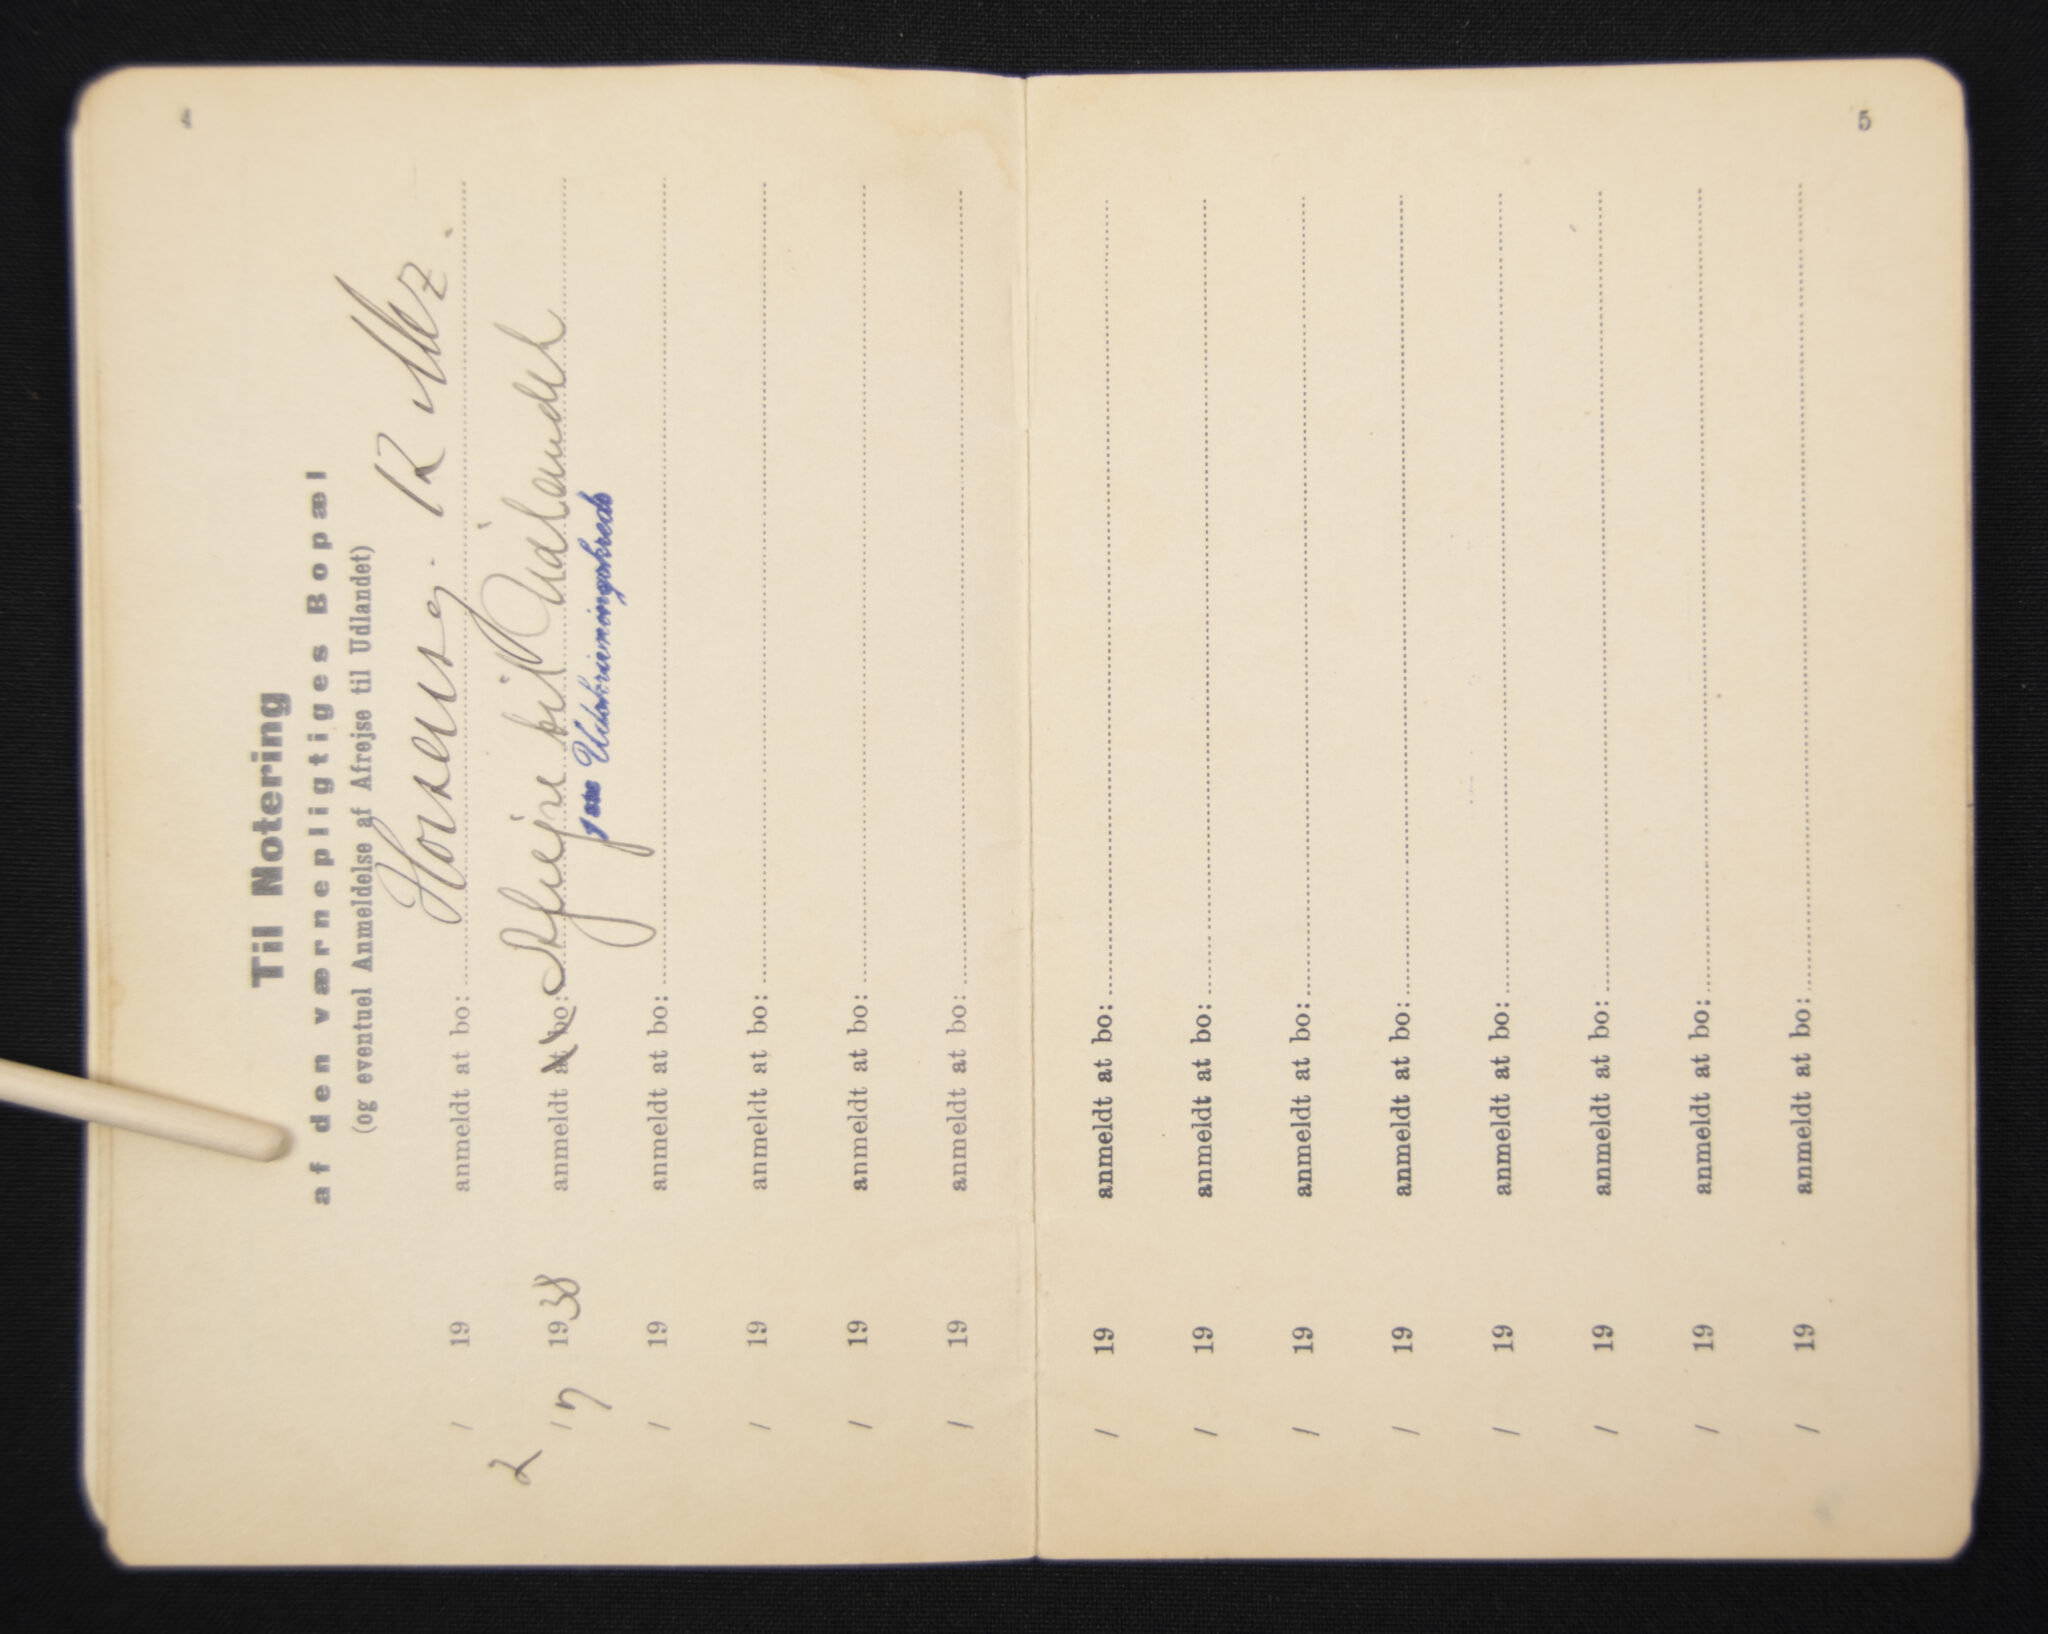 Til Notering
af den værnepligtiges Bopæl
(og eventuel Anmeldelse af Afrejse til Udlandet)
/ 19 anmeldt at bo: Horsens
2/7 1938 anmeldt at bo: Afrejse til Udlandet
1ste Udskrivningskreds
/ 19 anmeldt at bo:
/ 19 anmeldt at bo:
/ 19 anmeldt at bo:
/ 19 anmeldt at bo:
5
/ 19 anmeldt at bo:
/ 19 anmeldt at bo:
/ 19 anmeldt at bo:
/ 19 anmeldt at bo:
/ 19 anmeldt at bo:
/ 19 anmeldt at bo:
/ 19 anmeldt at bo:
/ 19 anmeldt at bo: